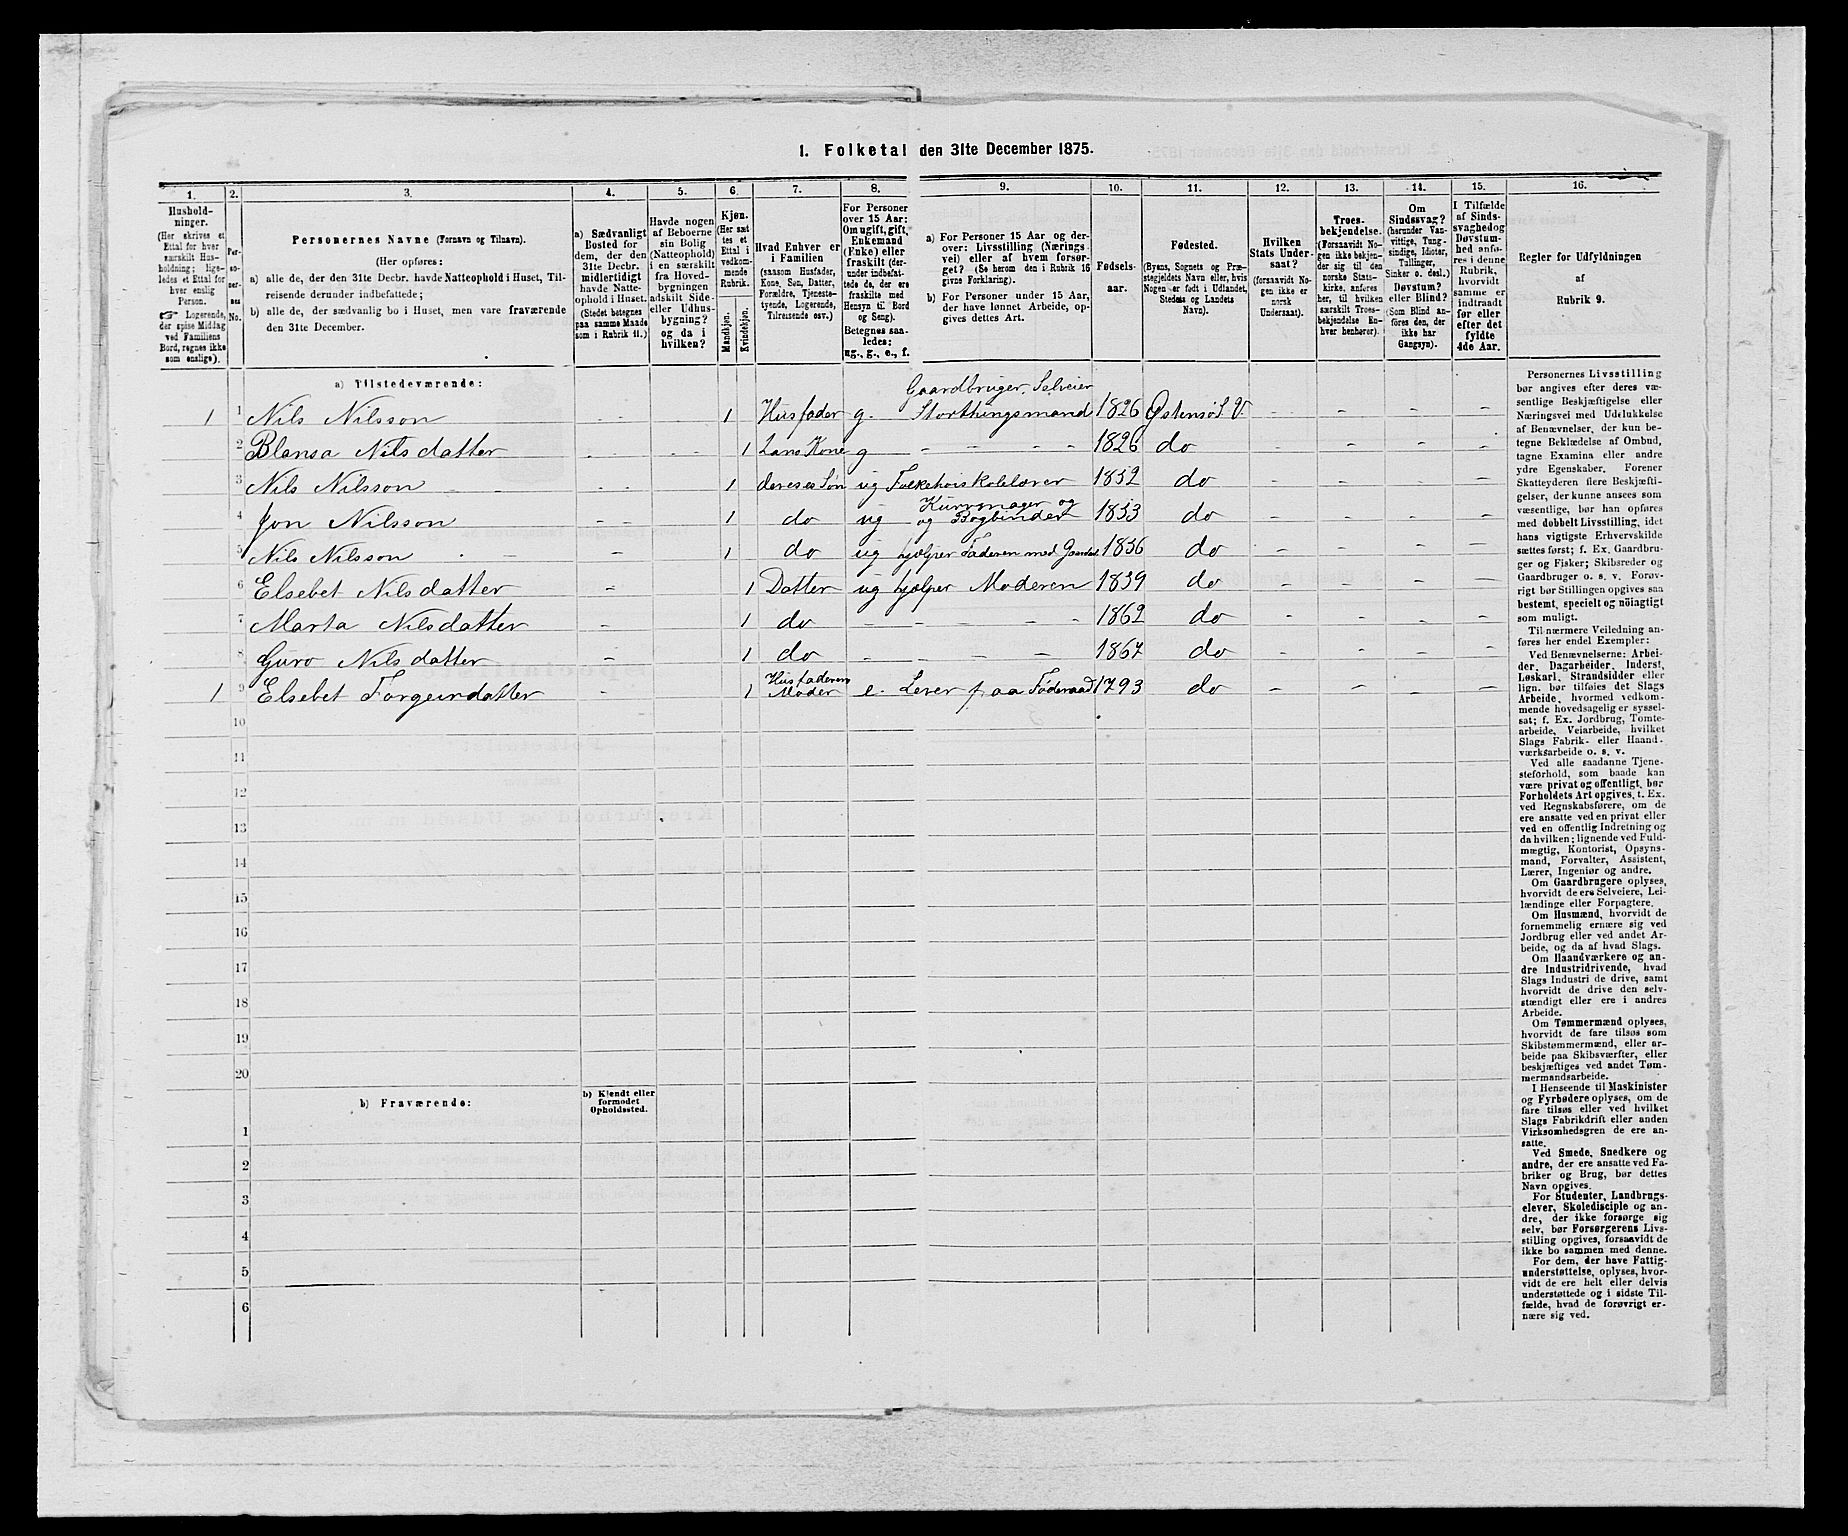 1. Folketal den 31te December 1875.
1. 2. 3. 4. 5. 6. 7. 8. 9. 10. 11. 12. 13. 14. 15. 16.
Hushold-
ninger.
(Her skrives et
Ettal for hver
særskilt Hus-
holdning; lige-
ledes et Ettal for
hver enslig
Person.
☞ Logerende,
der spise Middag
ved Familiens
Bord, regnes ikke
som enslige).
Per-
so-
ner-
nes
No.
Personernes Navne (Fornavn og Tilnavn).
(Her opføres:
a) alle de, der den 31te Decbr. havde Natteophold i Huset, Til-
reisende derunder indbefattede;
b) alle de, der sædvanlig bo i Huset, men vare fraværende
den 31te December.
a) Sædvanligt
Bosted for
dem, der den
31te Decbr.
midlertidigt
havde Natte-
ophold i Huset.
(Stedet betegnes
paa samme Maade
som i Rubrik 11.)
Havde nogen
af Beboerne
sin Bolig
(Natteophold)
i en særskilt
fra Hoved-
bygningen
adskilt Side-
eller Udhus-
bygning?
og da i
hvilken?
Kjøn.
(Her sæt-
tes et
Ettal i
vedkom-
mende
Rubrik.
Mandkjøn.
Kvindekjøn.
Hvad Enhver er
i Familien
(saasom Husfader,
Kone, Søn, Datter,
Forældre, Tjeneste-
tyende, Logerende,
Tilreisende osv.)
For Personer
over 15 Aar:
Om ugift, gift,
Enkemand
(Enke) eller
fraskilt (der-
under indbefat-
tede de, der ere
fraskilte med
Hensyn til Bord
og Seng).
Betegnes saa-
ledes:
ug., g., e., f.
a) For Personer 15 Aar og der-
over: Livsstilling (Nærings-
vei) eller af hvem forsør-
get? (Se herom den i Rubrik 16
givne Forklaring).
b) For Personer under 15 Aar,
der have lønnet Arbeide, op-
gives dettes Art.
Fødsels-
aar.
Fødested.
(Byens, Sognets og Præ-
stegjeldets Navn eller, hvis
Nogen er født i Udlandet,
Stedets og Landets
Navn).
Hvilken
Stats Under-
saat?
(forsaavidt No-
gen ikke er
norsk
Undersaat).
Troes-
bekjendelse.
(Forsaavidt No-
gen ikke bekjen-
der sig til den
norske Stats-
kirke, anføres
her, til hvilken
særskilt Troes-
bekjendelse En-
hver henhører).
Om
Sindssvag?
(herunder Van-
vittige, Tung-
sindige, Idioter,
Tullinger,
Sinker o. desl.)
Døvstum?
eller Blind?
(Som Blind an-
føres den, der
ikke har
Gangsyn).
I Tilfælde
af Sinds-
svaghed og
Døvstum-
hed anfø-
res i denne
Rubrik,
hvorvidt
samme er
indtraadt
før eller
efter det
fyldte
4de Aar.
Regler for Udfyldningen
af
Rubrik 9.
a) Tilstedeværende:
Gaardbruger, Selveier
1 1 Nils Nilsson - - 1 Husfader g. Storthingsmand 1826 Østensø S. V. - - - -
2 Blansa Nilsdatter - - 1 Hans Kone g - - - 1826 do - - - -
3 Nils Nilsson - - 1 deres Søn ug Folkehøiskolelærer 1852 do - - - -
4 Jon Nilsson - - 1 do ug Kurvmager og
og Bogbinder 1853 do - - - -
5 Nils Nilsson - - 1 do ug hjælper Faderen med Gaards 1856 do - - - -
6 Elsebet Nilsdatter - 1 Datter ug hjælper Moderen 1859 do - - - -
7 Marta Nilsdatter - 1 do - - - - - 1862 do - - - -
8 Guro Nilsdatter - 1 do - - - - - 1867 do - - - -
1 9 Elsebet Torgeirdatter - 1 Husfaderens
Moder e. Lever paa Føderaad 1793 do - - - -
10
11
12
13
14
15
16
17
18
19
20
b) Fraværende:
b) Kjendt eller
formodet
Opholdssted.
1
2
3
4
5
6
Personernes Livsstilling
bør angives efter deres væ-
sentlige Beskjæftigelse eller
Næringsvei med Udelukkelse
af Benævnelser, der kun be-
tegne Beklædelse af Ombud,
tagne Examina eller andre
ydre Egenskaber. Forener
Skatteyderen flere Beskjæfti-
gelser, der kunne ansees som
væsentlige, bør han opføres
med dobbelt Livsstilling, idet
hans vigtigste Erhvervskilde
sættes først; f. Ex. Gaardbru-
ger og Fisker; Skibsreder og
Gaardbruger o. s. v. Forøv-
rigt bør Stillingen opgives saa
bestemt, specielt og nöiagtigt
som muligt.
Til nærmere Veiledning an-
føres her endel Exempler:
Ved Benævnelserne: Arbei-
der, Dagarbeider, Inderst,
Løskarl, Strandsidder eller
lign. bør tilføies det Slags
Arbeide, hvormed vedkom-
mende hovedsagelig er syssel-
sat; f. Ex. Jordbrug, Tomte-
arbeide, Veiarbeide, hvilket
Slags Fabrik- eller Haand-
værksarbeide o. s. v.
Ved alle saadanne Tjene-
steforhold, som baade kan
være privat og offentligt, bør
Forholdets Art opgives, t. Ex.
ved Regnskabsførere, om de
ere ansatte ved en privat eller
ved en offentlig Indretning og
da hvilken; lignende ved Fuld-
mægtig, Kontorist, Opsyns-
mand, Forvalter, Assistent,
Lærer, Ingeniør og andre.
Om Gaardbrugere oplyses,
hvorvidt de ere Selveiere, Lei-
lændinge eller Forpagtere.
Om Husmænd, hvorvidt de
fornemmelig ernære sig ved
Jordbrug eller ved andet Ar-
beide, og da af hvad Slags.
Om Haandværkere og an-
dre Industridrivende, hvad
Slags Industri de drive, samt
hvorvidt de drive den selv-
stændigt eller ere i andres
Arbeide.
Om Tømmermænd oplyses,
hvorvidt de fare tilsøs som
Skibstømmermænd, eller ar-
beide paa Skibsværfter, eller
beskjæftiges ved andet Tøm-
mermandsarbeide.
I Henseende til Maskinister
og Fyrbødere oplyses, om de
fare tilsøs eller ved hvilket
Slags Fabrikdrift eller anden
Virksomhedsgren de ere an-
satte.
Ved Smede, Snedkere og
andre, der ere ansatte ved Fa-
briker og Brug, bør dettes
Navn opgives.
For Studenter, Landbrugs-
elever, Skoledisciple og an-
dre, der ikke forsørge sig
selv, bør Forsørgerens Livs-
stilling opgives, forsaavidt de
ikke bo sammen med denne.
For dem, der have Fattig-
understøttelse, oplyses, hvor-
vidt de ere helt eller delvis
understøttede og i sidste Til-
fælde, hvad de forøvrigt er-
nære sig ved.